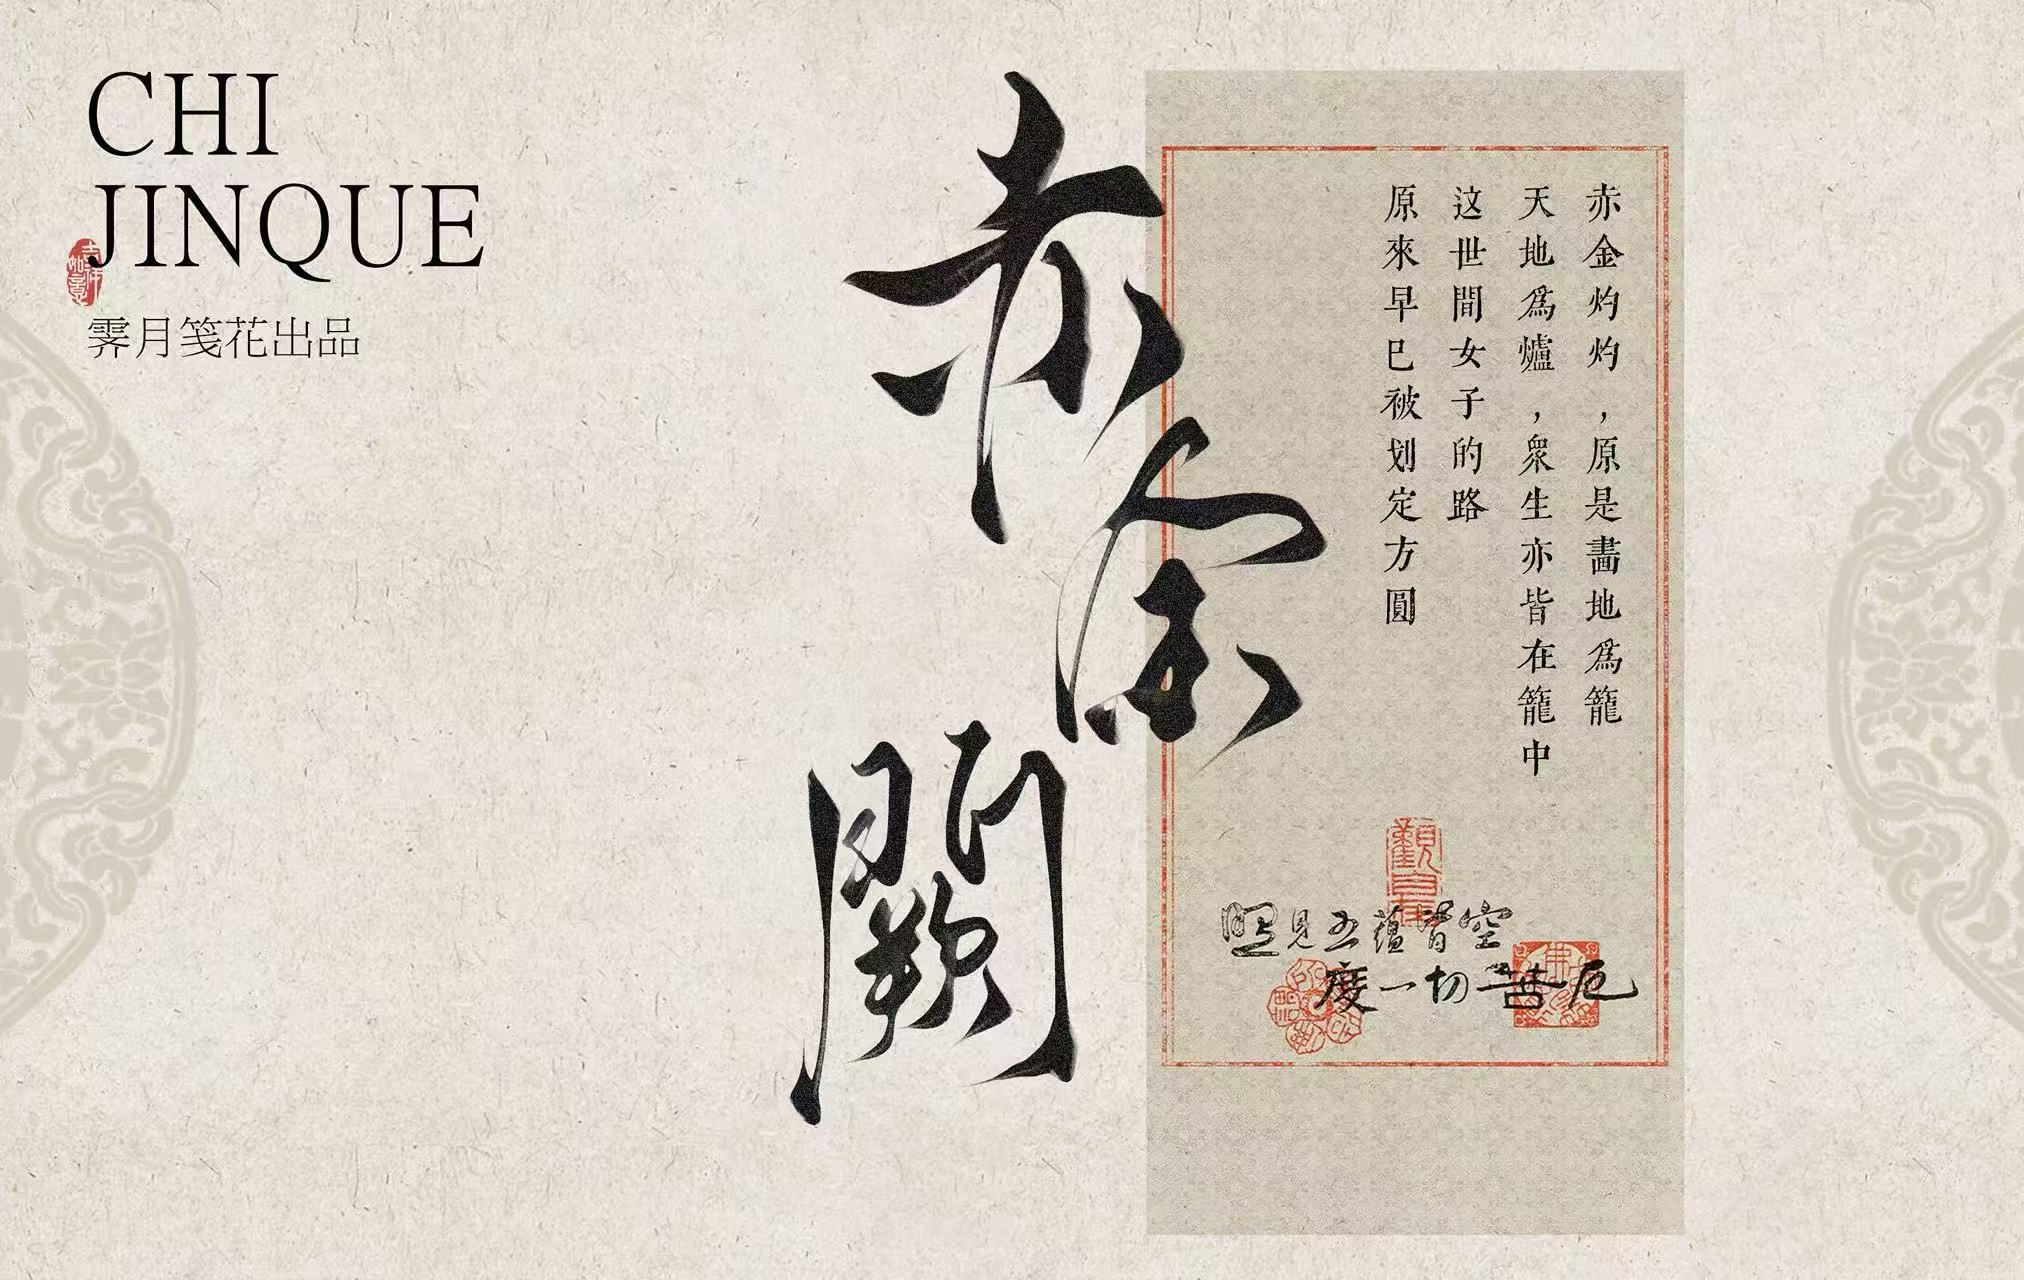 CHI
JINQUE
吉祥如意
霁月笺花出品
赤金闕
赤金灼灼，原是畵地為籠
天地為爐，衆生亦皆在籠中
这世間女子的路
原來早已被划定方圓
觀自在
照見五蘊皆空
度一切苦厄